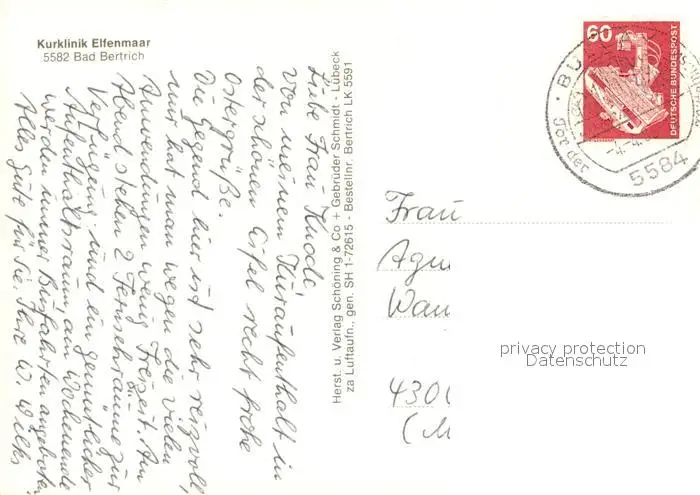 Kurklinik Elfenmaar
5582 Bad Bertrich
Liebe Frau Knode,
von meinem Kuraufenthalt in
der schönen Eifel recht frohe
Ostergrüße.
Die Gegend hier ist sehr reizvoll,
nur hat man wegen die vielen
Anwendungen wenig Freizeit. Am
Abend stehen 2 Fernsehräume zur
Verfügung und ein gemütlicher
Aufenthaltsraum, am Wochenende
werden immer Busfahrten angeboten.
Alles Gute für Sie, Ihre W.
Herst. u. Verlag Schöning & Co + Gebrüder Schmidt - Lübeck
za Luftaufn., gen. SH 1-72615 - Bestellnr. Bertrich LK 5591
60
DEUTSCHE BUNDESPOST
Tor der
5584
Frau
Agn
Wan
430
(M
privacy protection
Datenschutz